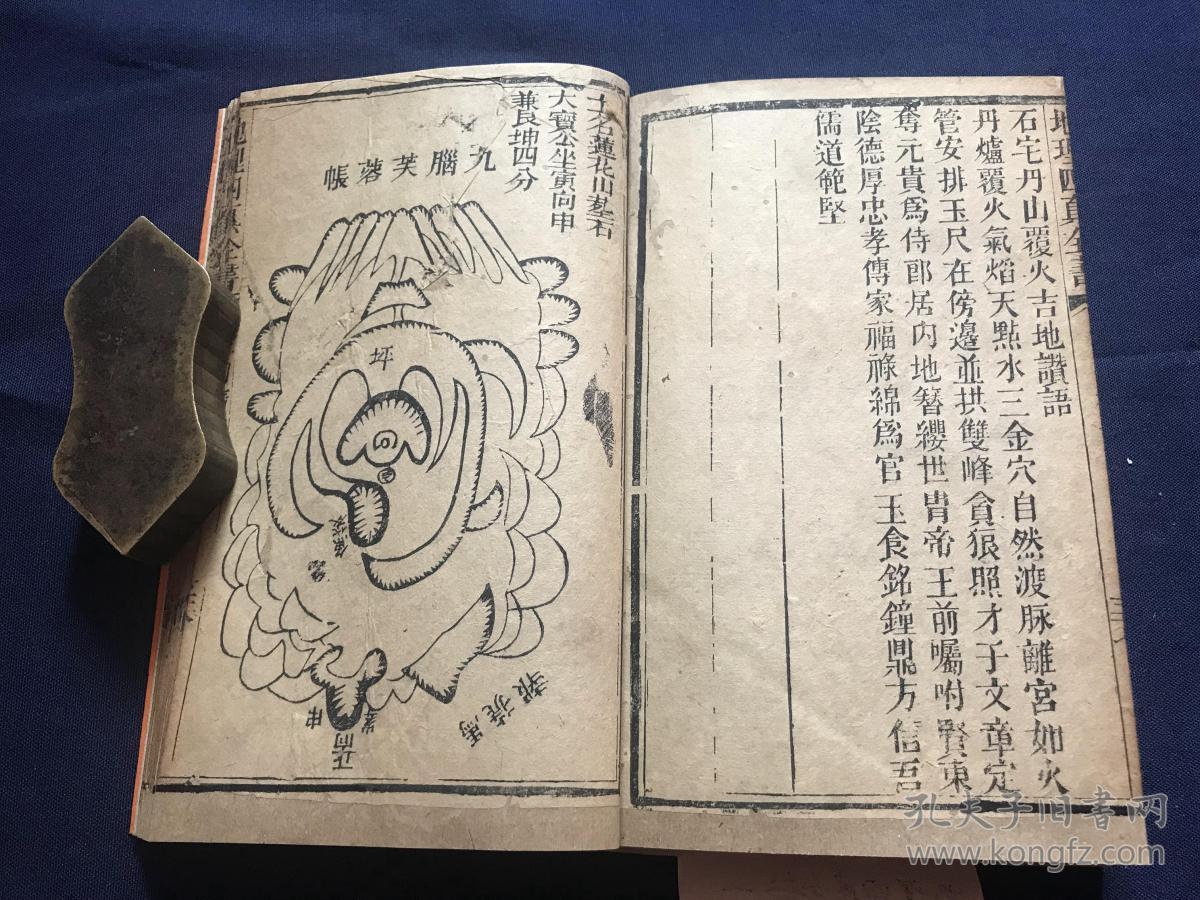 地理四真全書
石宅丹山覆火吉地讚語
丹爐覆火氣焰天點水三金穴自然渡脉離宮如火
管安排玉尺在傍邊並拱雙峰貪狼照才子文章定
奪元貴爲侍郎居内地簪纓世胄帝王前囑咐賢東
陰德厚忠孝傳家福祿綿爲官玉食銘鐘鼎方信吾
儒道範堅
土名蓮花山墓石
大寶公坐寅向申
兼艮坤四分
九腦芙蓉帳
坪
案
申
馬
孔夫子旧书网
www.kongfz.com